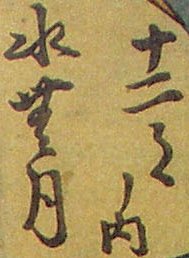 十二之内
水無月